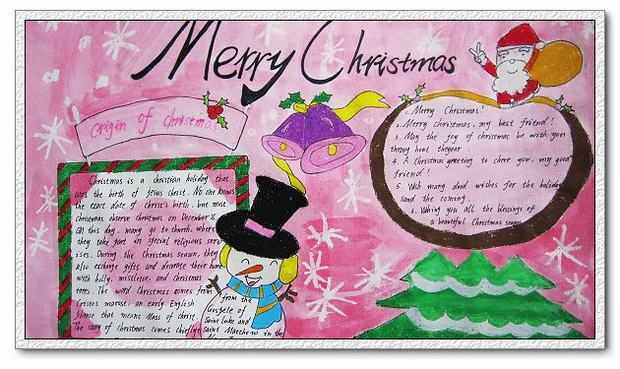 Merry Christmas
Origin of Christmas
Christmas is a christian holiday that
the birth of Jesus Christ. No one knows
the exact date of Christ's birth, but most
christmas observe christmas on December 25.
On this day, many go to church, where
they take part in special religious serv
ices. During the Christmas season, they
also exchange gifts and decorate their homes
with holly, mistletoe, and christmas
trees. The word Christmas comes from
an early English
phrase that means Mass of Christ.
The story of Christmas comes chiefly
from the
Gospels of
Saint Luke and
Saint Matthew in the
1. Merry Christmas!
2. Merry christmas, my best friend!
3. May the joy of christmas be with you
through hout the year.
4. A Christmas greeting to cheer you, my good
friend!
5. With many good wishes for the holiday
and the coming.
6. Wishing you all the blessings of
a beautiful Christmas season